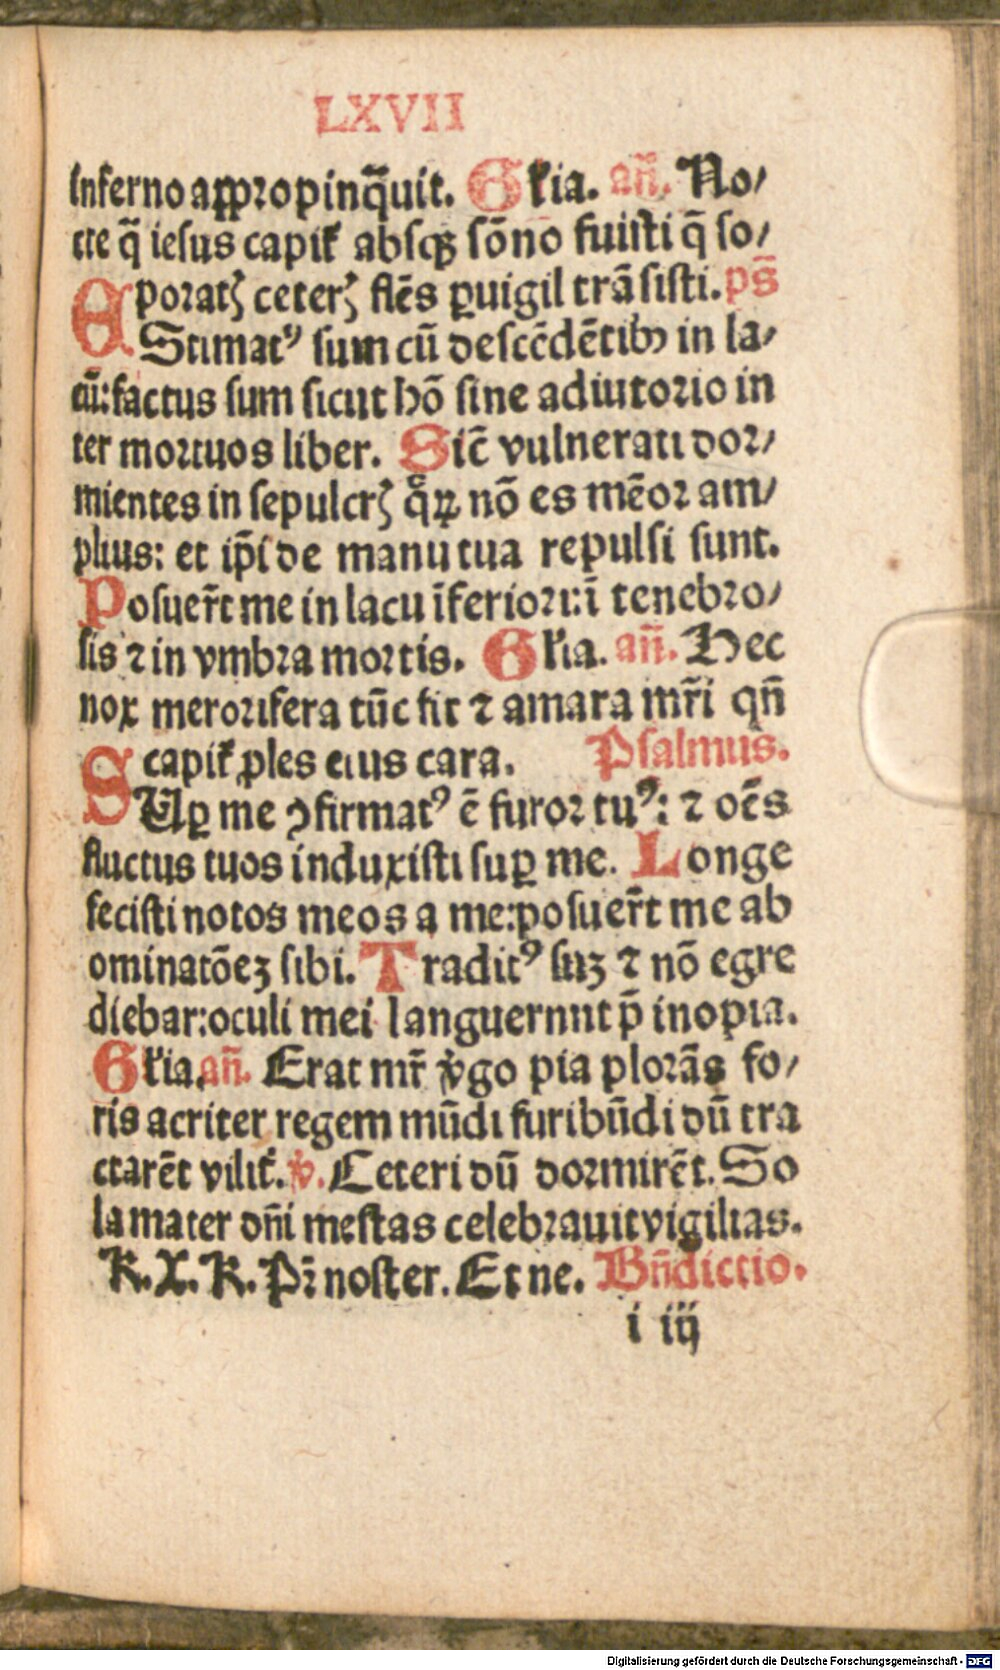 LXVII
inferno appropinq̃uit. Gl̃ia. añ. No/
cte q̃ iesus capit᷑ absqꝫ sõno fuisti q̃ so/
poratꝭ ceterꝭ flẽs ꝑuigil trãsisti. ps̃
EStimatꝰ sum cũ descẽdẽtibꝰ in la/
cũ: factus sum sicut hõ sine adiutorio in
ter mortuos liber. Sic̃ vulnerati dor/
mientes in sepulcrꝭ q̃ꝝ nõ es mẽor am/
plius: et ip̃i de manu tua repulsi sunt.
Posuer̃t me in lacu ĩferiori: ĩ tenebro/
sis ⁊ in vmbra mortis. Gl̃ia. añ. Hec
nox merorifera tũc fit ⁊ amara mr̃i qñ
capit᷑ ꝓles eius cara. Psalmus.
SUꝑ me ꝯfirmatꝰ ẽ furor tuꝰ: ⁊ oẽs
fluctus tuos induxisti suꝑ me. Longe
fecisti notos meos a me: posuer̃t me ab
ominatõeꝫ sibi. Traditꝰ suꝫ ⁊ nõ egre
diebar: oculi mei languernnt p̃ inopia.
Gl̃ia. añ. Erat mr̃ v̾go pia plorãs fo/
ris acriter regem mũdi furibũdi dũ tra
ctarẽt vilit᷑. v̾. Ceteri dũ dormirẽt. So
la mater dñi mestas celebrauit vigilias.
K. X. K. Pr̃ noster. Et ne. Bñdictio.
i iij
Digitalisierung gefördert durch die Deutsche Forschungsgemeinschaft - DFG